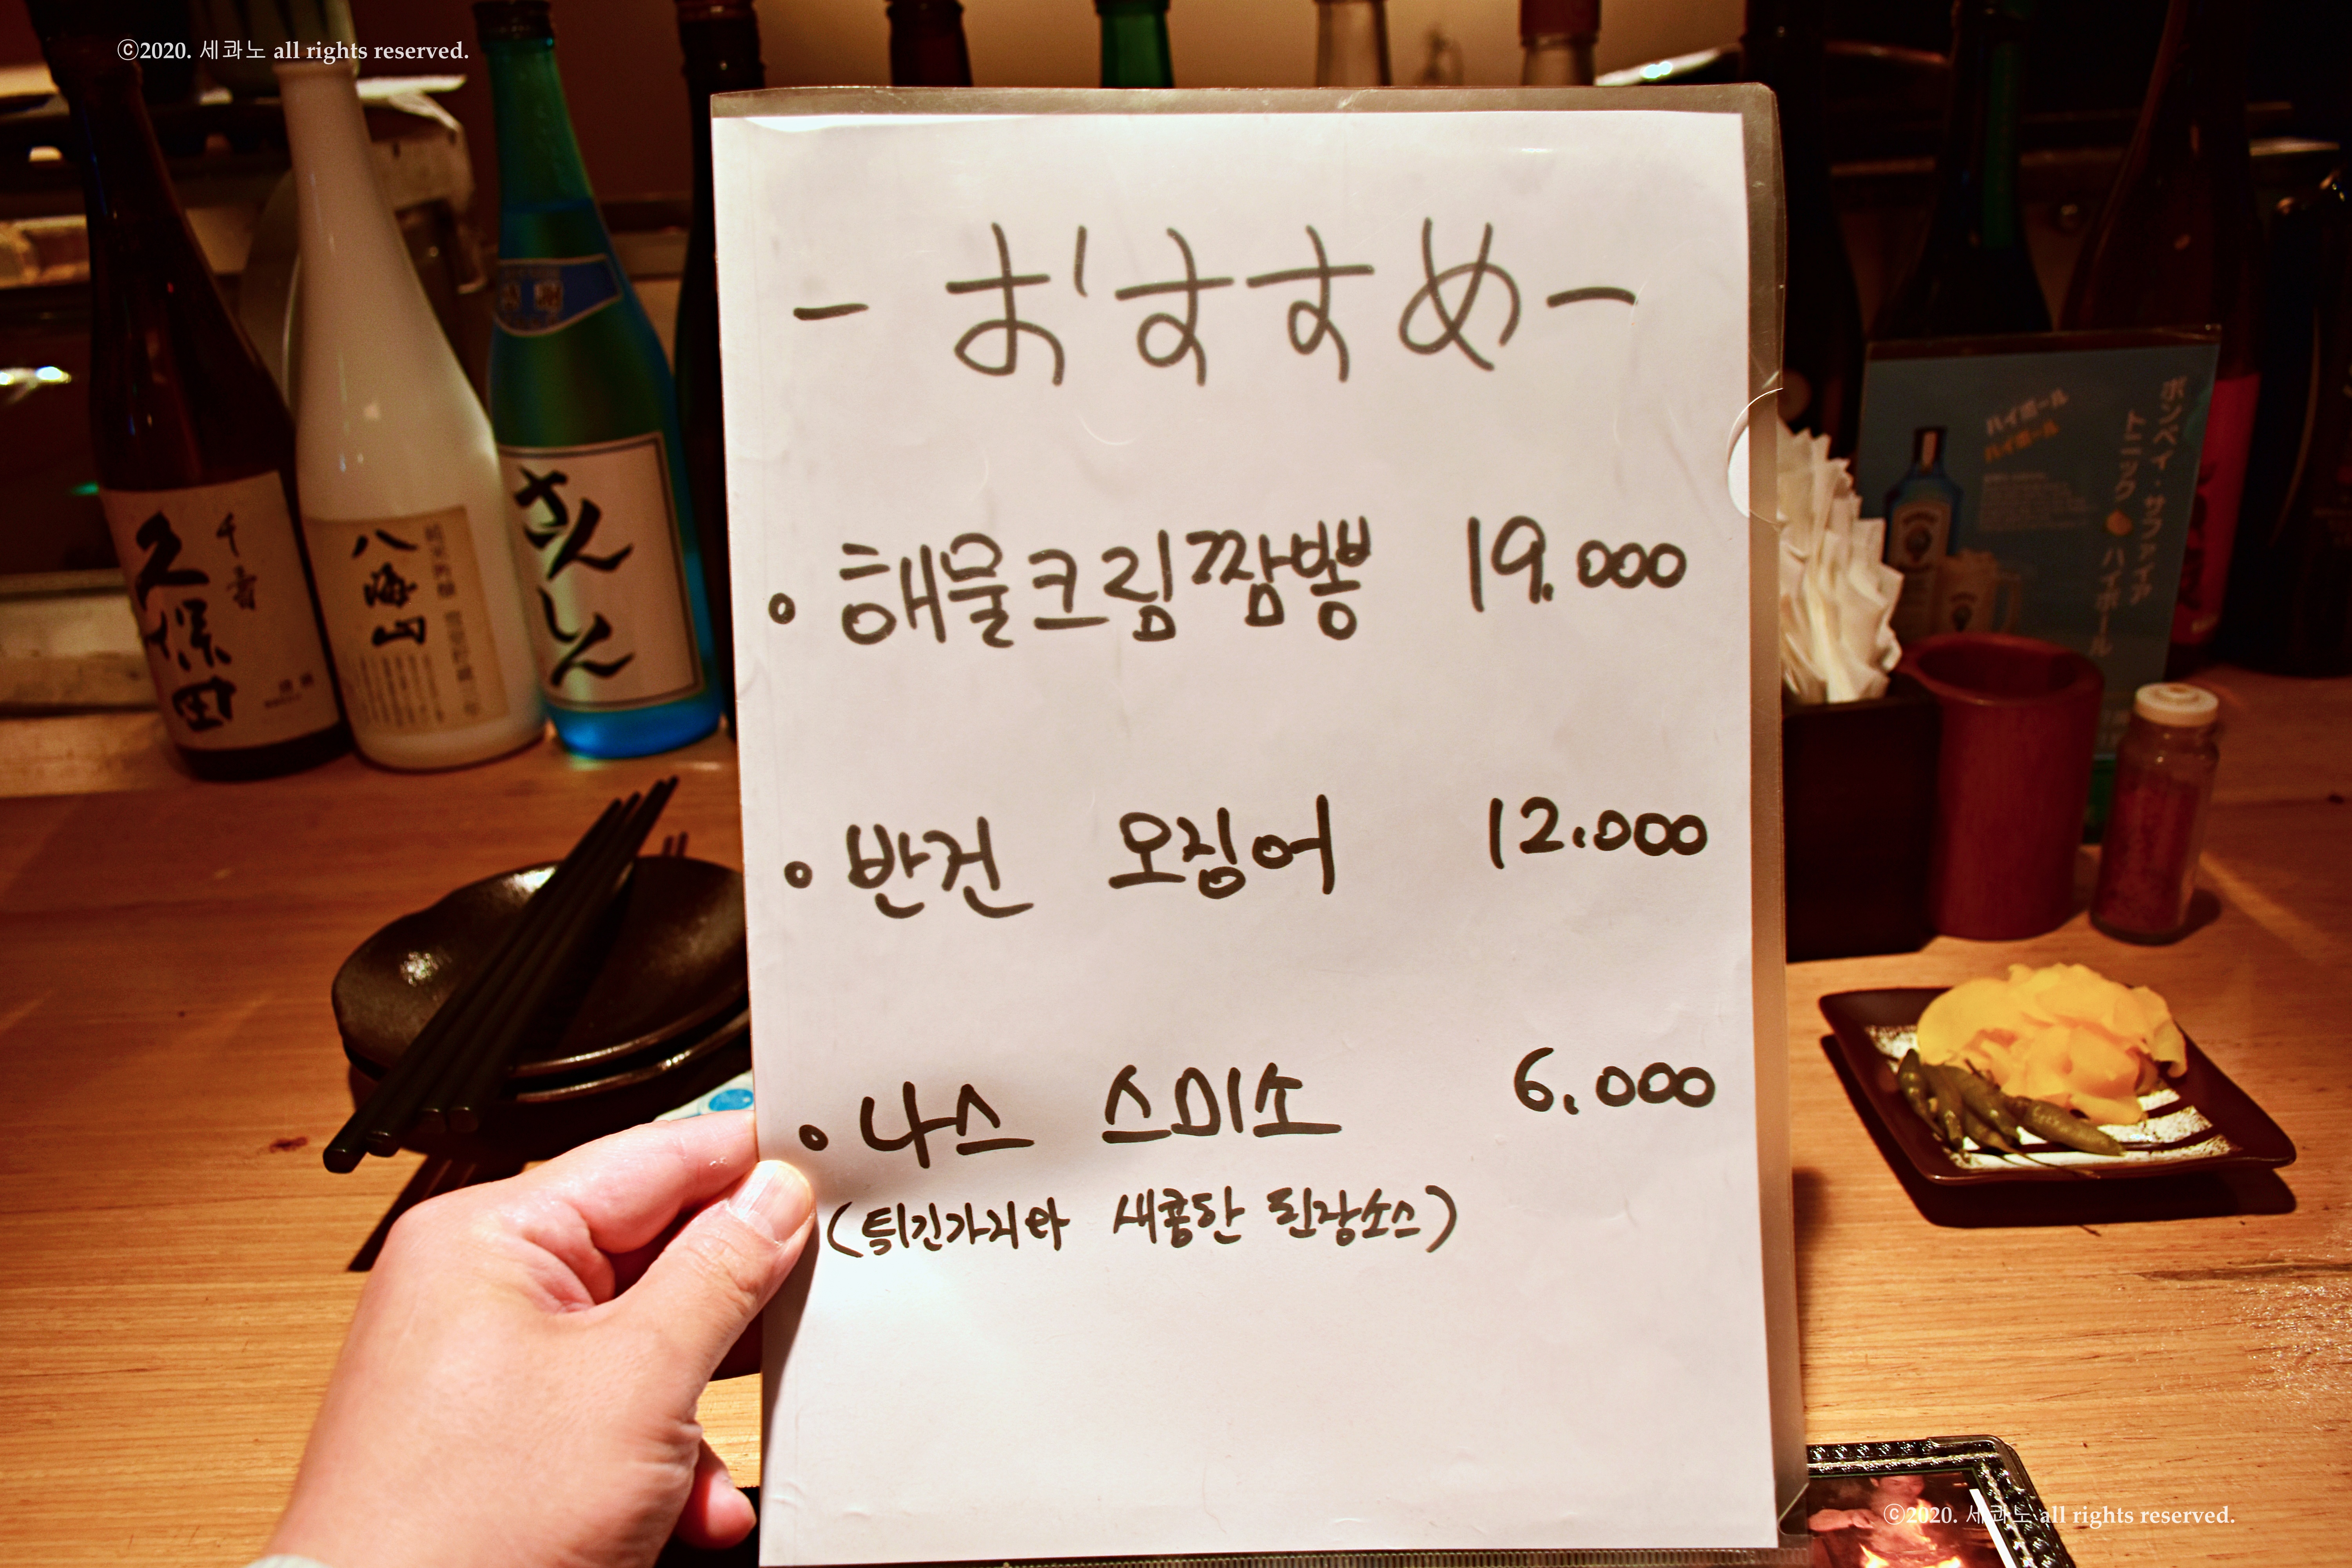 ⓒ2020. 세콰노 all rights reserved.
- おすすめ -
• 해물크림짬뽕 19.000
• 반건 오징어 12.000
• 나스 스미소 6.000
(튀긴가지와 새콤한 된장소스)
久保田
千寿
八海山
さんしん
ハイボール
ハイボール
ボンベイ・サファイア
トニック ハイボール
ⓒ2020. 세콰노 all rights reserved.